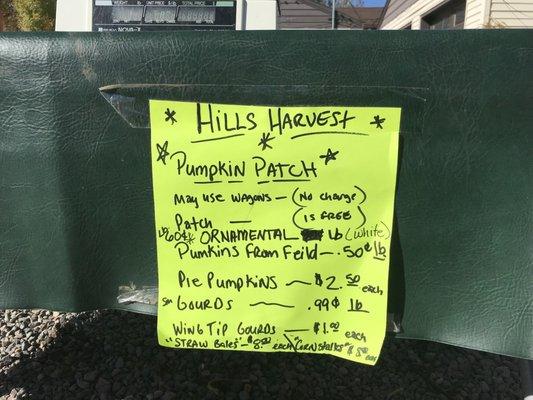 WEIGHT lb UNIT PRICE $/lb TOTAL PRICE $
* HILLS HARVEST *
*
☆ PUMPKIN PATCH ☆
MAY USE WAGONS — (No charge)
Patch — (IS FREE)
60¢ ORNAMENTAL lb (white)
PUMKINS FROM FEILD — .50¢ lb
PIE PUMPKINS — $2.50 each
Sm GOURDS — .99¢ lb
WING TIP GOURDS — $1.00 each
"STRAW Bales" — $8.00 each "CORN STALKS" $5.00